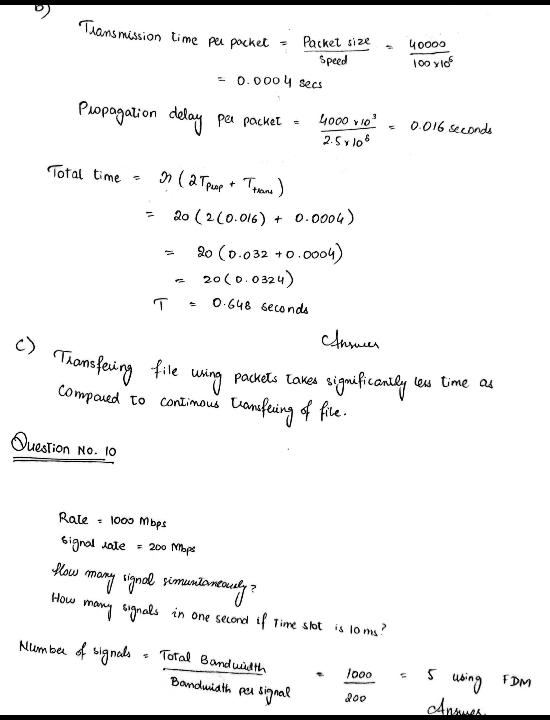 b)
Transmission time per packet = Packet size / Speed = 40000 / 100 x 10⁶
= 0.0004 secs
Propagation delay per packet = 4000 x 10³ / 2.5 x 10⁸ = 0.016 seconds
Total time = n ( 2Tprop + Ttrans )
= 20 ( 2 (0.016) + 0.0004 )
= 20 ( 0.032 + 0.0004 )
= 20 ( 0.0324 )
T = 0.648 seconds
Answer
c) Transfering file using packets takes significantly less time as
compared to continous transfering of file.
Question No. 10
Rate = 1000 Mbps
Signal rate = 200 Mbps
How many signal simuntaneously?
How many signals in one second if Time slot is 10 ms?
Number of signals = Total Bandwidth / Bandwidth per signal = 1000 / 200 = 5 using FDM
Answer.